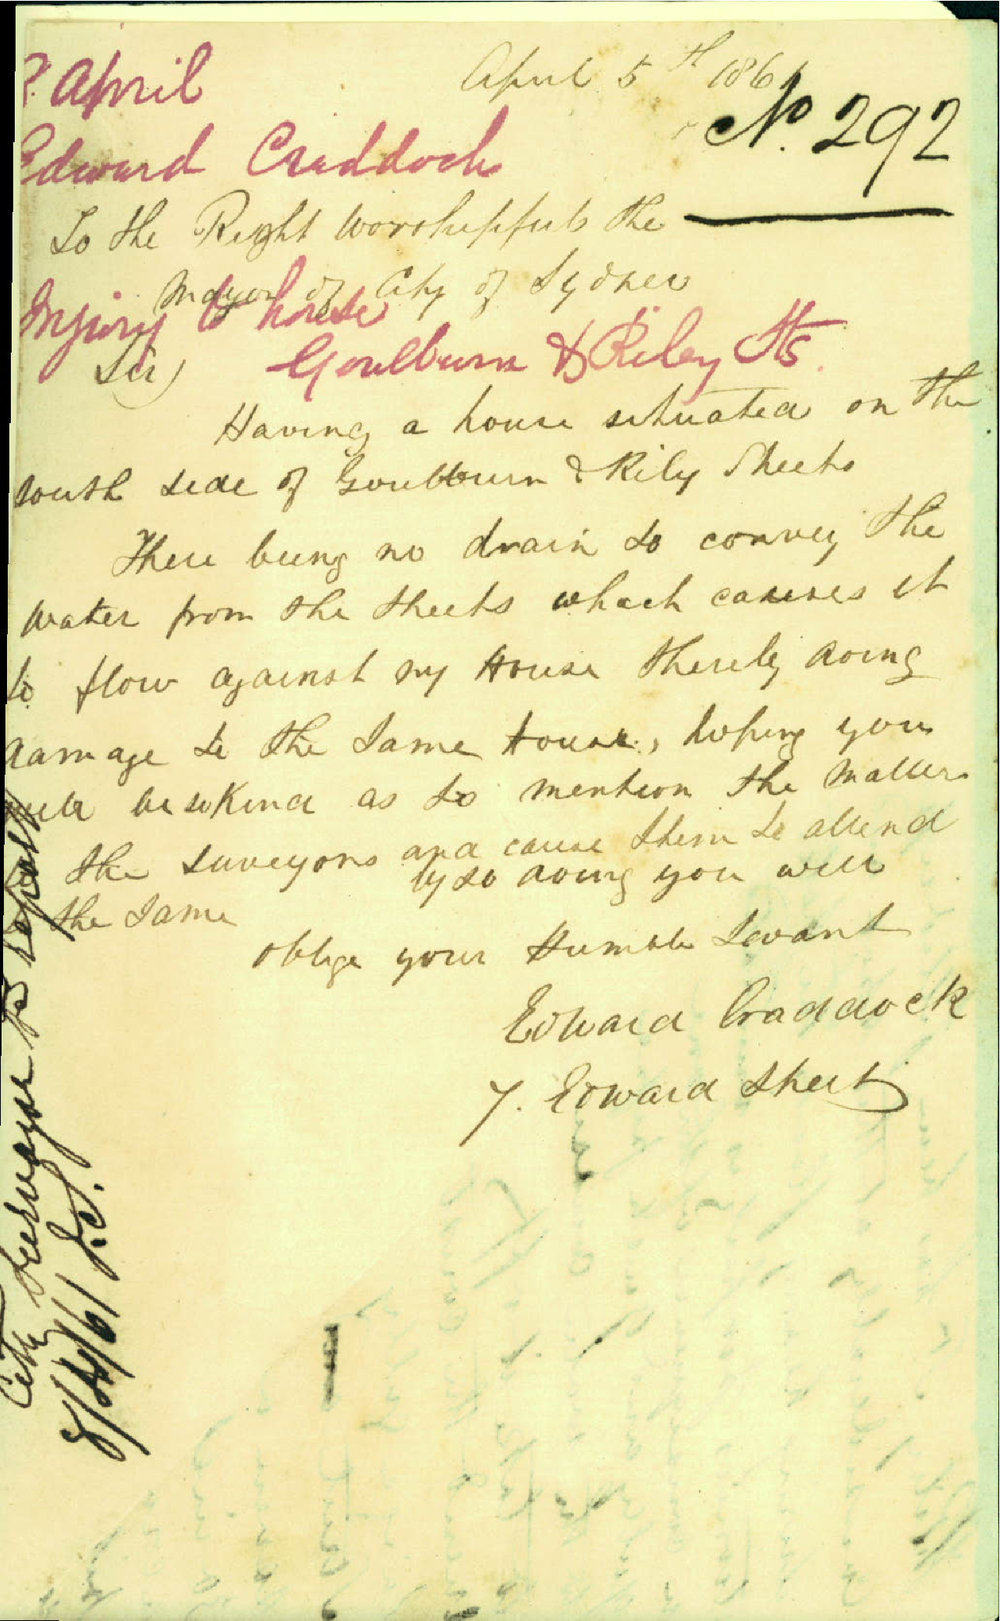 April 5th 1861
No. 292
? April
Edward Craddock
To the Right Worshipfull the
Mayor of City of Sydney
Injury to house
Goulburn & Riley Sts
Sir,
Having a house situated on the
south side of Goulburn & Rily Streets
There being no drain to convey the
water from the streets which causes it
to flow against my House thereby doing
damage to the same house, hoping you
will be so kind as to mention the matter
to the surveyors and cause them to attend
the same by so doing you will
oblige your Humble Servant
Edward Craddock
7. Edward Street
City Surveyor to report
8/4/61